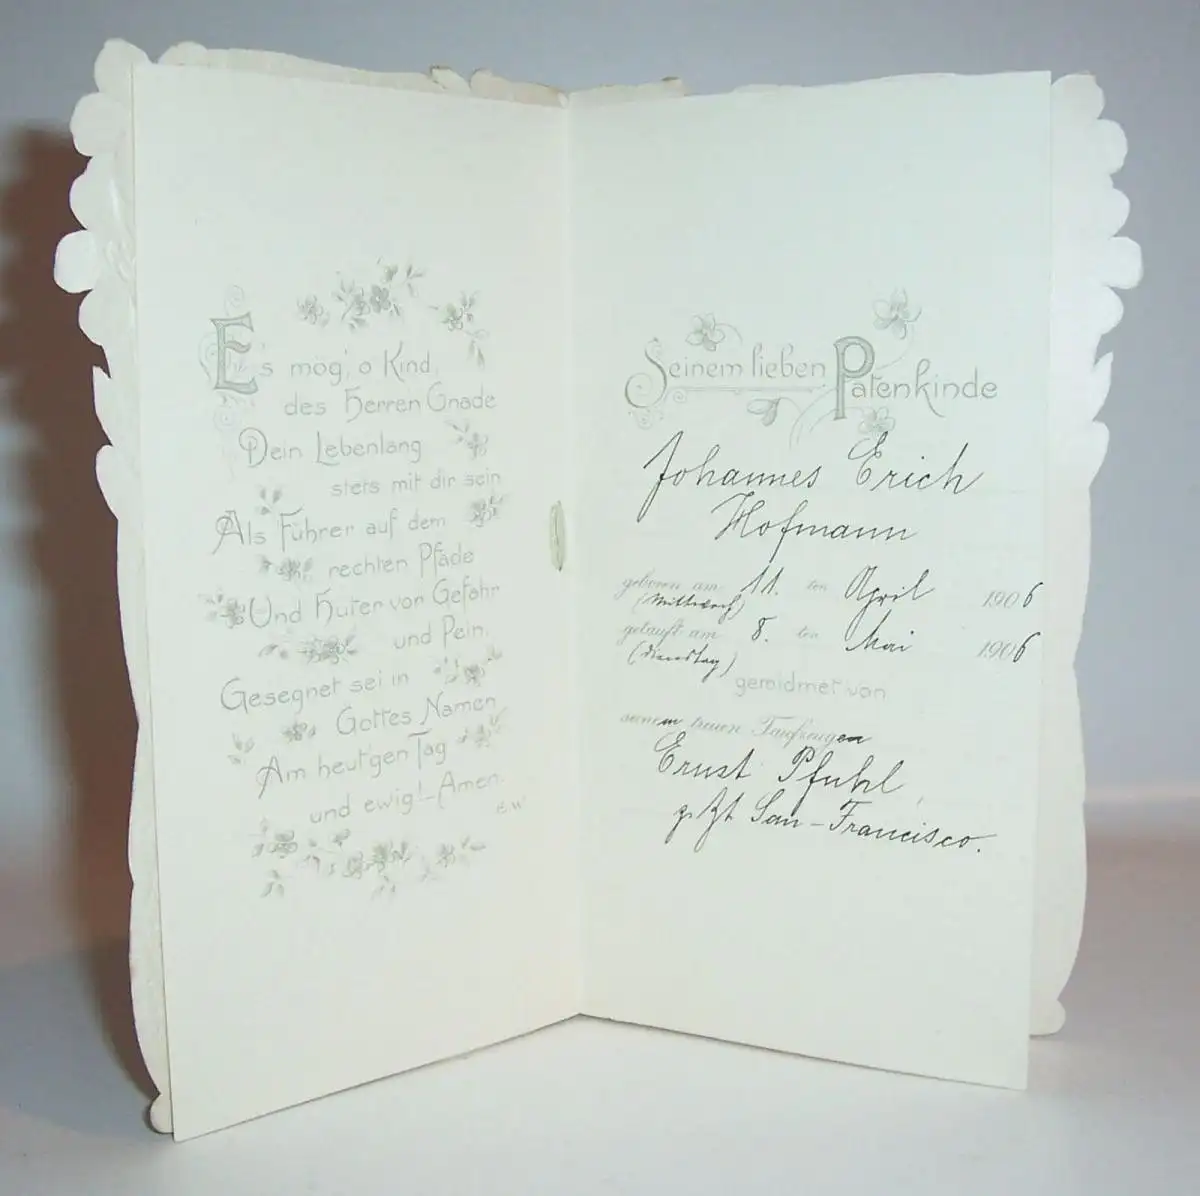 Es mög', o Kind,
des Herren Gnade
Dein Lebenlang
stets mit dir sein
Als Führer auf dem
rechten Pfade
Und Hüter vor Gefahr
und Pein.
Gesegnet sei in
Gottes Namen
Am heut'gen Tag
und ewig! – Amen.
E.W.
Seinem lieben Patenkinde
Johannes Erich
Hofmann
geboren am 11. ten April 1906
(Mittwoch)
getauft am 8. ten Mai 1906
(Dienstag)
gewidmet von
seinem treuen Taufzeugen
Ernst Pfuhl,
z. Zt. San-Francisco.